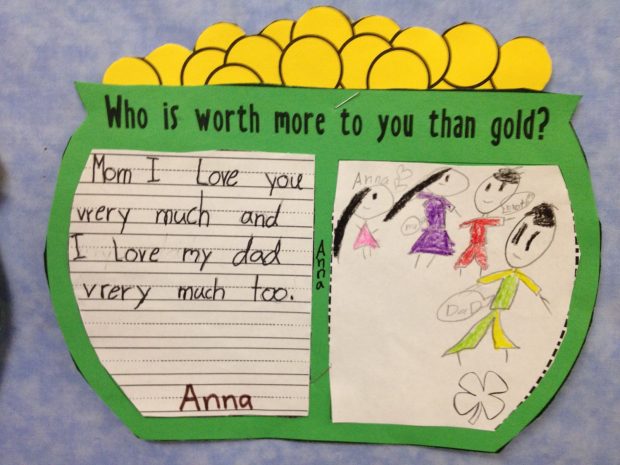 Who is worth more to you than gold?
Mom I Love you
vrery much and
I Love my dad
vrery much too.
Anna
Anna
Anna
DaD